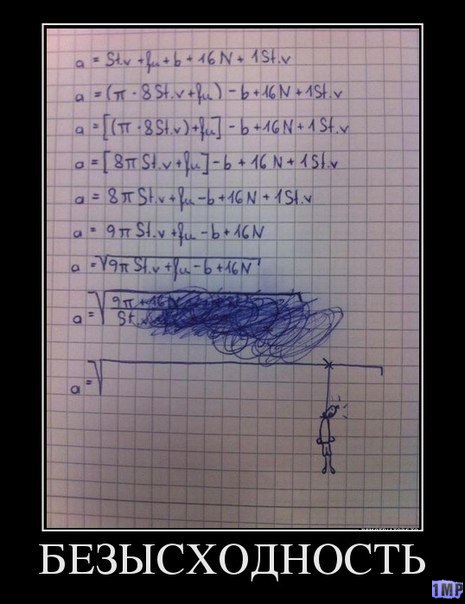 a = St.v + fμ + b + 16N + 1St.v
a = (π · 8St.v + fμ) - b + 16N + 1St.v
a = [(π · 8St.v) + fμ] - b + 16N + 1St.v
a = [8π St.v + fμ] - b + 16N + 1St.v
a = 8π St.v + fμ - b + 16N + 1St.v
a = 9π St.v + fμ - b + 16N
a = √9π St.v + fμ - b + 16N
a = √ 9π + 16N
St.v
a = √
БЕЗЫСХОДНОСТЬ
1MP